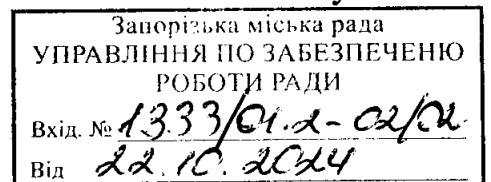 Запорізька міська рада
УПРАВЛІННЯ ПО ЗАБЕЗПЕЧЕНЮ
РОБОТИ РАДИ
Вхід. № 1333/01.2-02/02
Від 22.10.2024